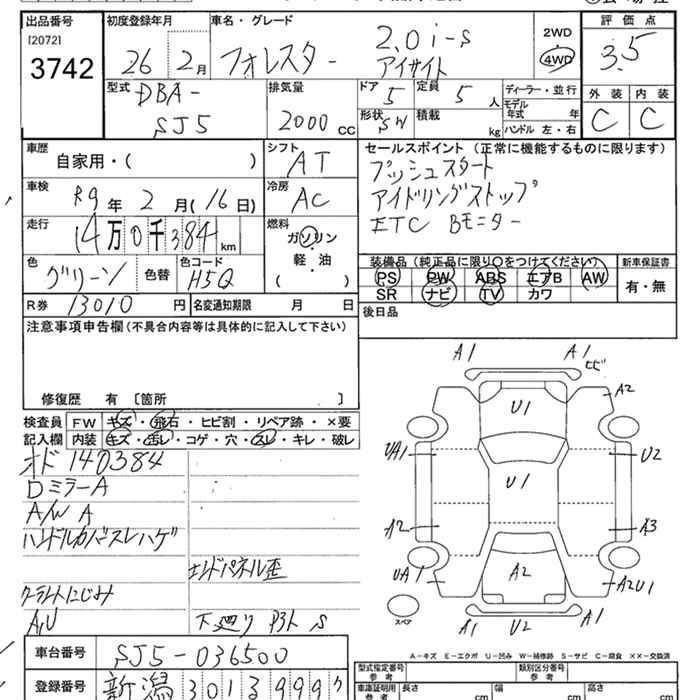 出品番号 初度登録年月 車名・グレード 評価点
[2072]
3742
26 2月 フォレスター 2.0i-s アイサイト
2WD
4WD
3.5
型式 DBA-
SJ5
排気量 2000 CC
ドア 5 定員 5 人
形状 SW 積載 kg
ディーラー・並行
モデル年式 年
ハンドル 左・右
外装 内装
C C
車歴 自家用・( )
シフト AT
セールスポイント(正常に機能するものに限ります)
プッシュスタート
アイドリングストップ
ETC Bモニター
車検 R9 年 2 月(16日)
冷房 AC
走行 14万0千384 km
燃料 ガソリン・軽・油
( )
色 グリーン 色替 色コード H5Q
装備品(純正品に限り○をつけてください) 新車保証書
PS PW ABS エアB AW
SR ナビ TV カワ
有・無
R券 13010 円 名変通知期限 月 日
後日品
注意事項申告欄(不具合内容等は具体的に記入して下さい)
修復歴 有 [箇所 ]
検査員記入欄
FW キズ・飛石・ヒビ割・リペア跡・×要
内装 キズ・汚レ・コゲ・穴・スレ・キレ・破レ
オド 140384
Dミラー A
A/W A
ハンドルカバースレハゲ
エンドパネル歪
クーラントにじみ
A,U 下廻り P3ト S
A1 A1 ヒビ
U1 A2
UA1 U1 U2
A2 A3
UA1 A2 A2U1
スペア
A1 U2 A1
A-キズ E-エクボ U-凹み W-補修跡 S-サビ C-腐食 ××-交換済
車台番号 SJ5-036500
登録番号 新潟 301 3 9997
型式指定番号 参考 類別区分番号 参考
車庫証明用 参考 長さ cm 幅 cm 高さ cm